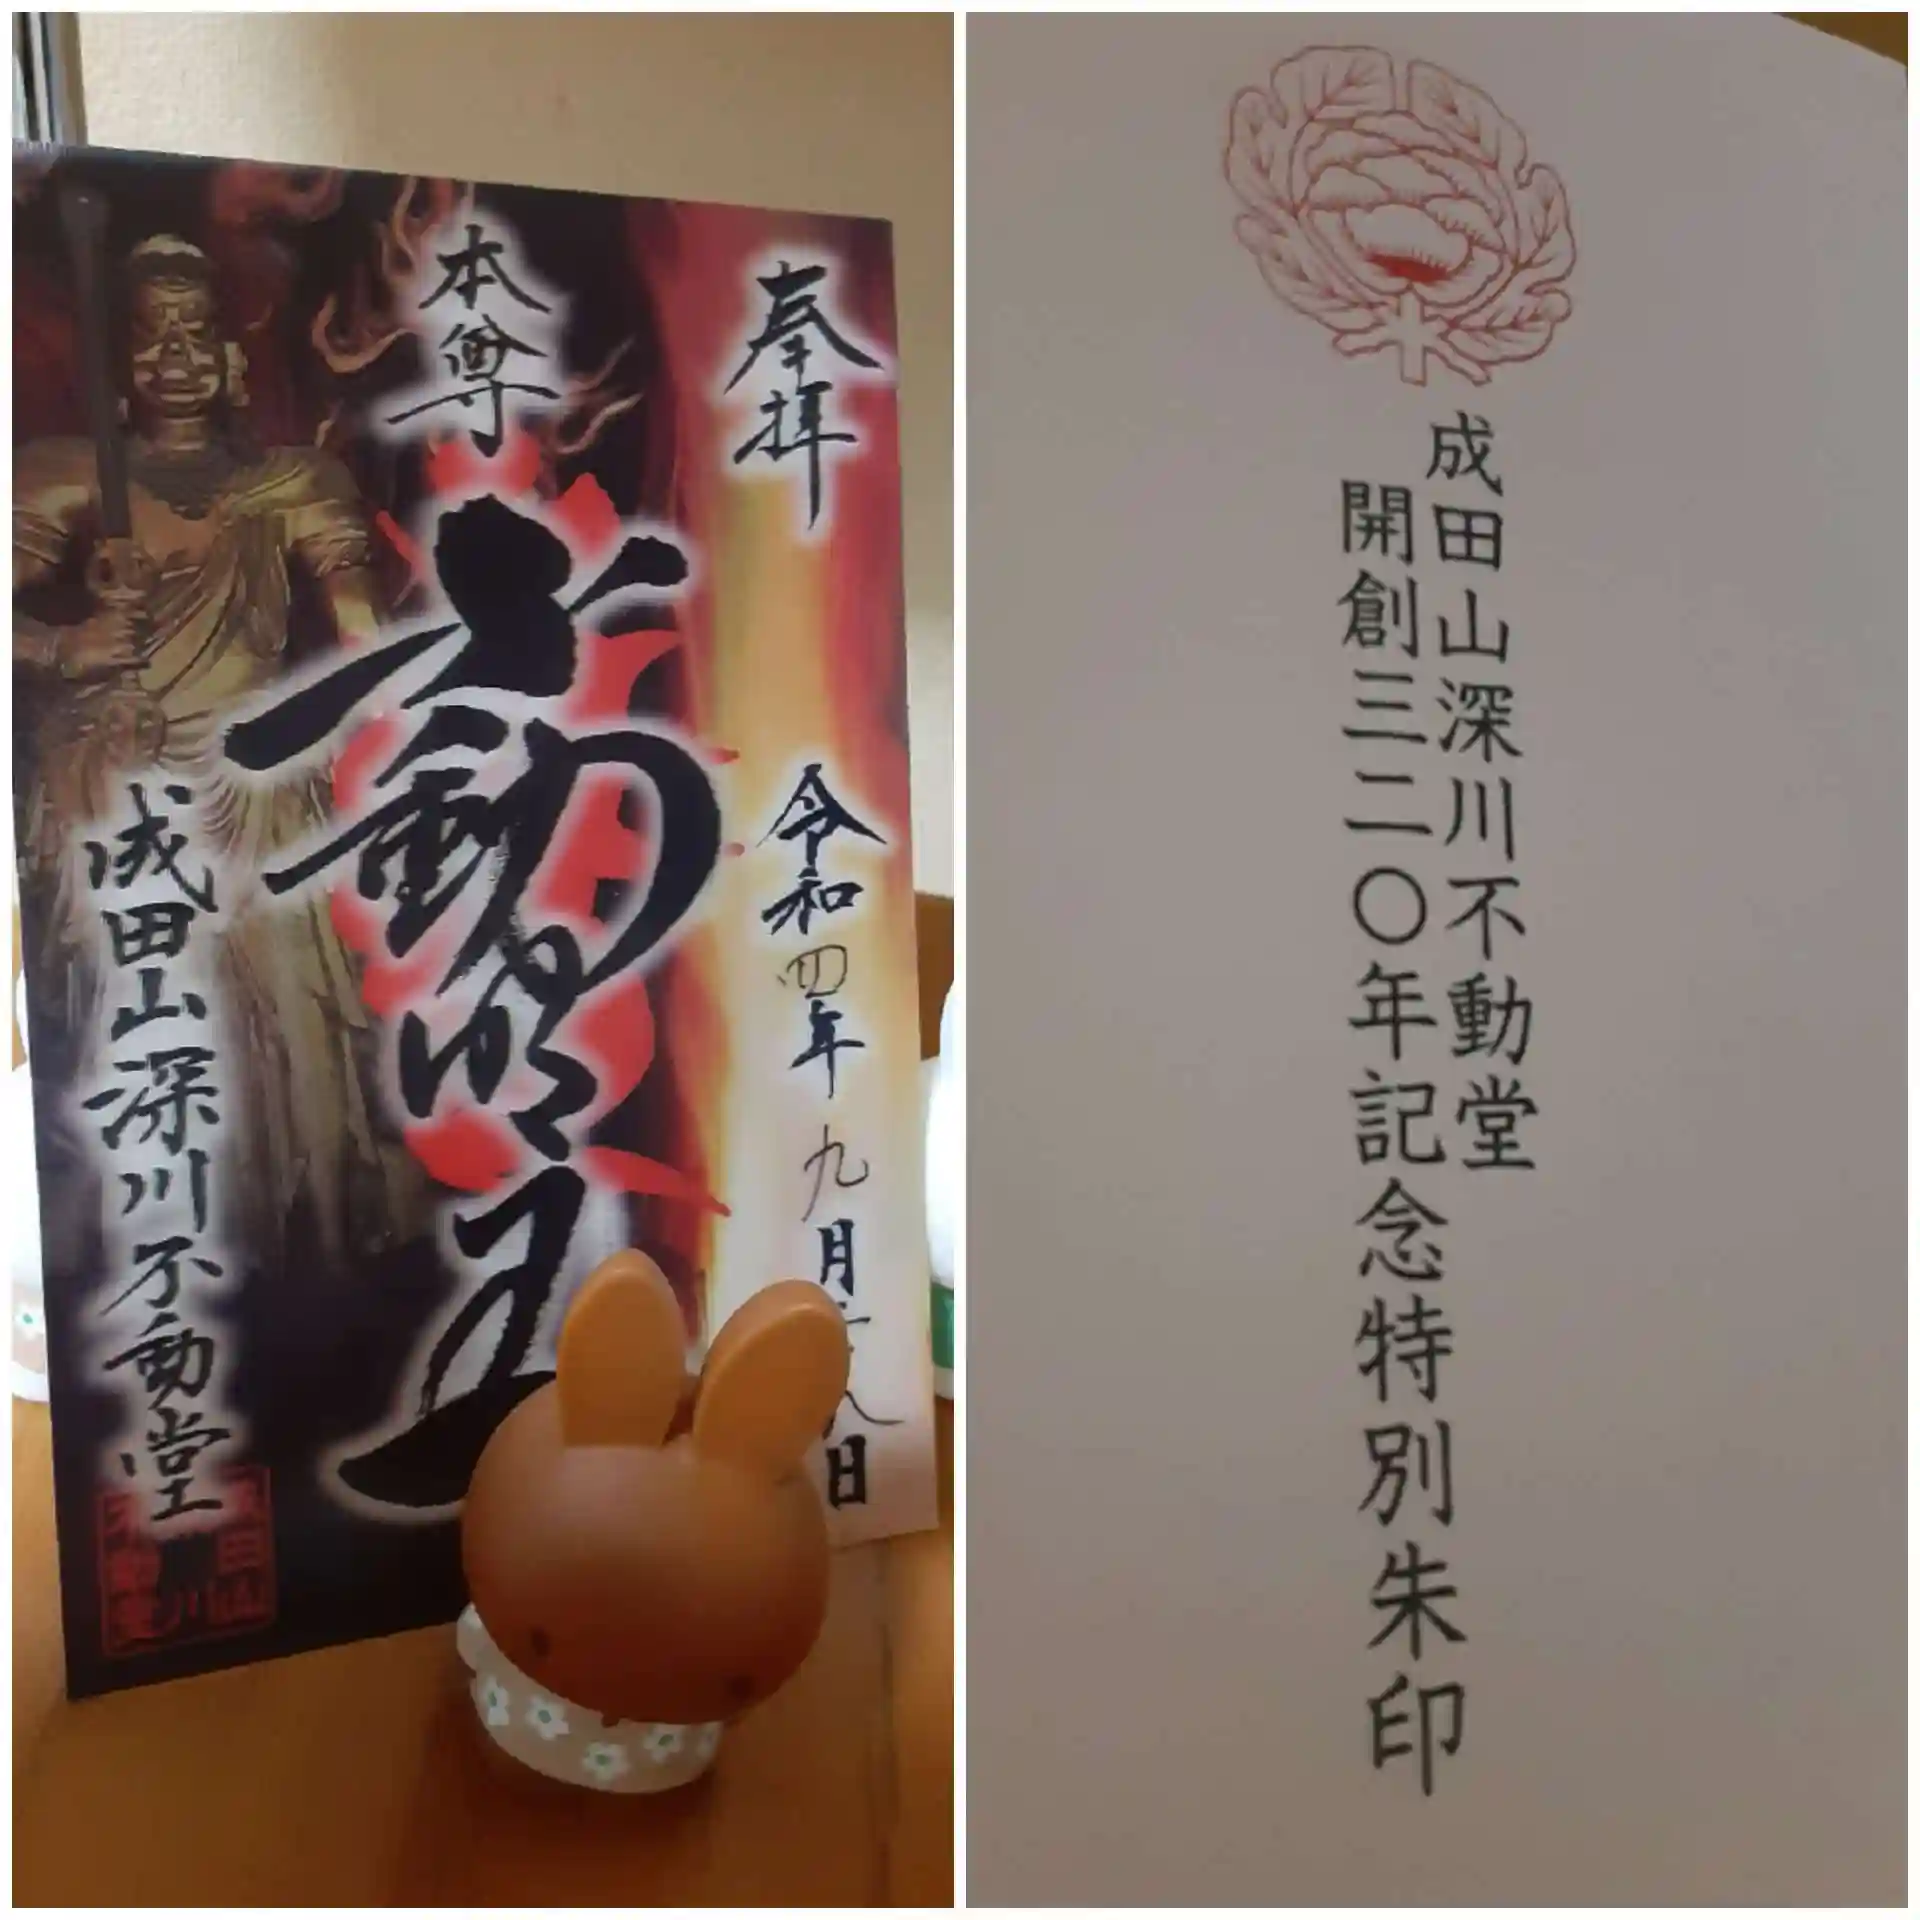 奉拝
令和四年九月
八日
本尊
不動明王
成田山深川不動堂
成田山深川不動堂
成田山深川不動堂
開創三二〇年記念特別朱印